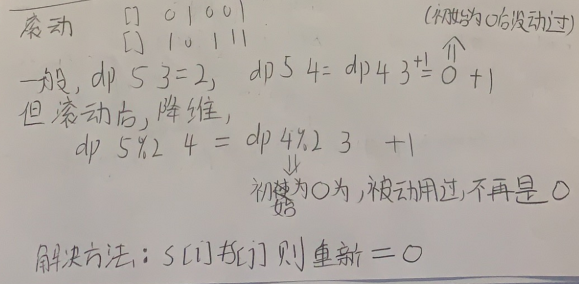 滚动 [] 0 1 0 0 1
[] 1 0 1 1 1
(初始为0后没动过)
一般, dp 5 3=2, dp 5 4= dp 4 3+1= 0 +1
但滚动后, 降维,
dp 5%2 4 = dp 4%2 3 +1
初始为0为, 被动用过, 不再是 0
解决方法: S[i]≠S[j] 则重新=0